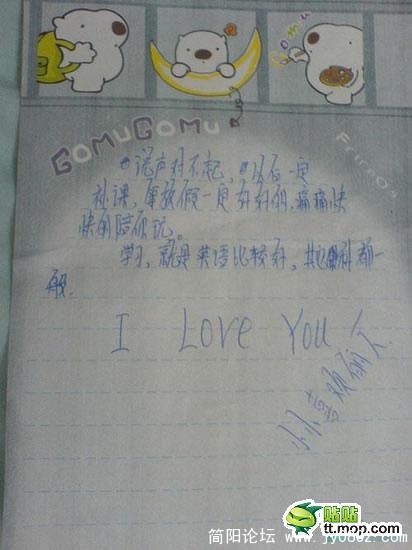 GOMUGOMU
Friends
说声对不起,以后一定
补课,等放假一定好好的,痛痛快
快的陪你玩。
学习,就是英语比较好,其他科都一
般.
I Love You
贴贴
tt.mop.com
简阳论坛 www.jy0832.com